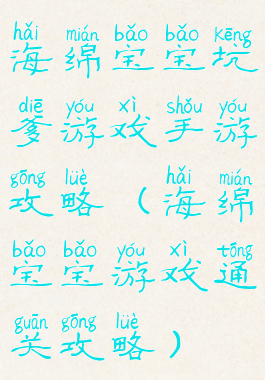 hǎi mián bǎo bǎo kēng
海绵宝宝坑
diē yóu xì shǒu yóu
爹游戏手游
gōng lüè hǎi mián
攻略（海绵
bǎo bǎo yóu xì tōng
宝宝游戏通
guān gōng lüè
关攻略）